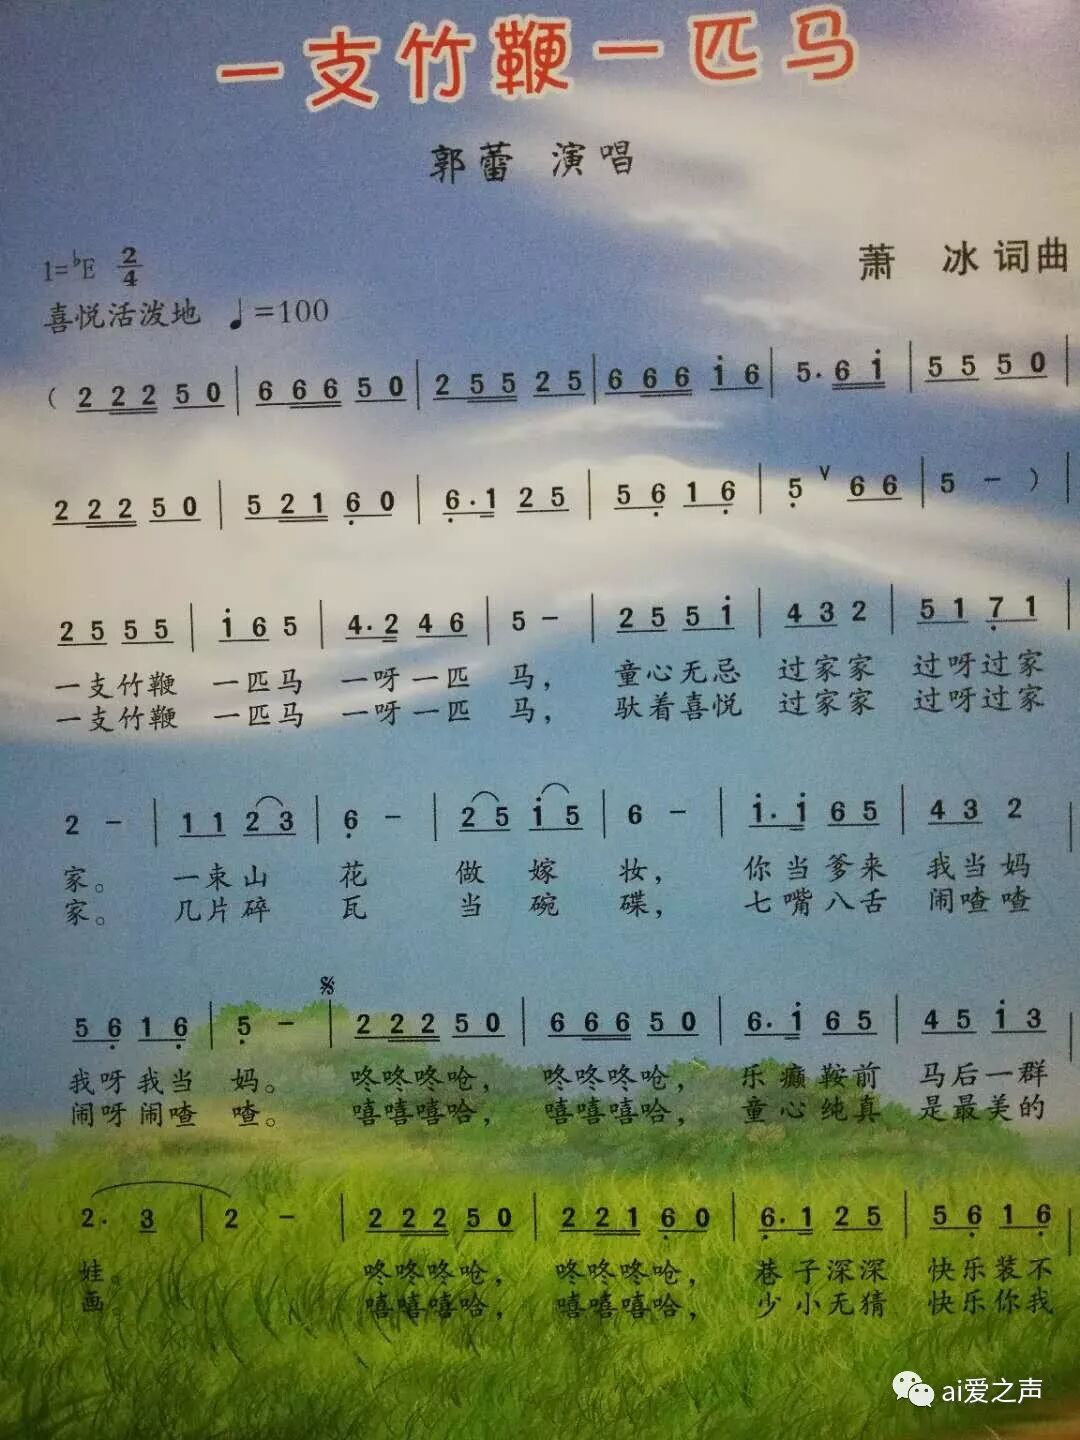 一支竹鞭一匹马
郭蕾 演唱
1=♭E 2/4
萧 冰 词曲
喜悦活泼地 ♩=100
( 2 2 2 5 0 | 6 6 6 5 0 | 2 5 5 2 5 | 6 6 6 i 6 | 5. 6 i | 5 5 5 0 |
2 2 2 5 0 | 5 2 1 6 0 | 6. 1 2 5 | 5 6 1 6 | 5 ∨ 6 6 | 5 - ) |
2 5 5 5 | i 6 5 | 4. 2 4 6 | 5 - | 2 5 5 i | 4 3 2 | 5 1 7 1 |
一支竹鞭 一匹马 一呀一匹 马, 童心无忌 过家家 过呀过家
一支竹鞭 一匹马 一呀一匹 马, 驮着喜悦 过家家 过呀过家
2 - | 1 1 2 3 | 6 - | 2 5 i 5 | 6 - | i. i 6 5 | 4 3 2 |
家。 一束山 花 做 嫁 妆, 你当爹来 我当妈
家。 几片碎 瓦 当 碗 碟, 七嘴八舌 闹喳喳
5 6 1 6 | 5 - | 𝄋 2 2 2 5 0 | 6 6 6 5 0 | 6. i 6 5 | 4 5 i 3 |
我呀我当 妈。 咚咚咚呛, 咚咚咚呛, 乐癫鞍前 马后一群
闹呀闹喳 喳。 嘻嘻嘻哈, 嘻嘻嘻哈, 童心纯真 是最美的
2. 3 | 2 - | 2 2 2 5 0 | 2 2 1 6 0 | 6. 1 2 5 | 5 6 1 6 |
娃。 咚咚咚呛, 咚咚咚呛, 巷子深深 快乐装不
画。 嘻嘻嘻哈, 嘻嘻嘻哈, 少小无猜 快乐你我
ai爱之声